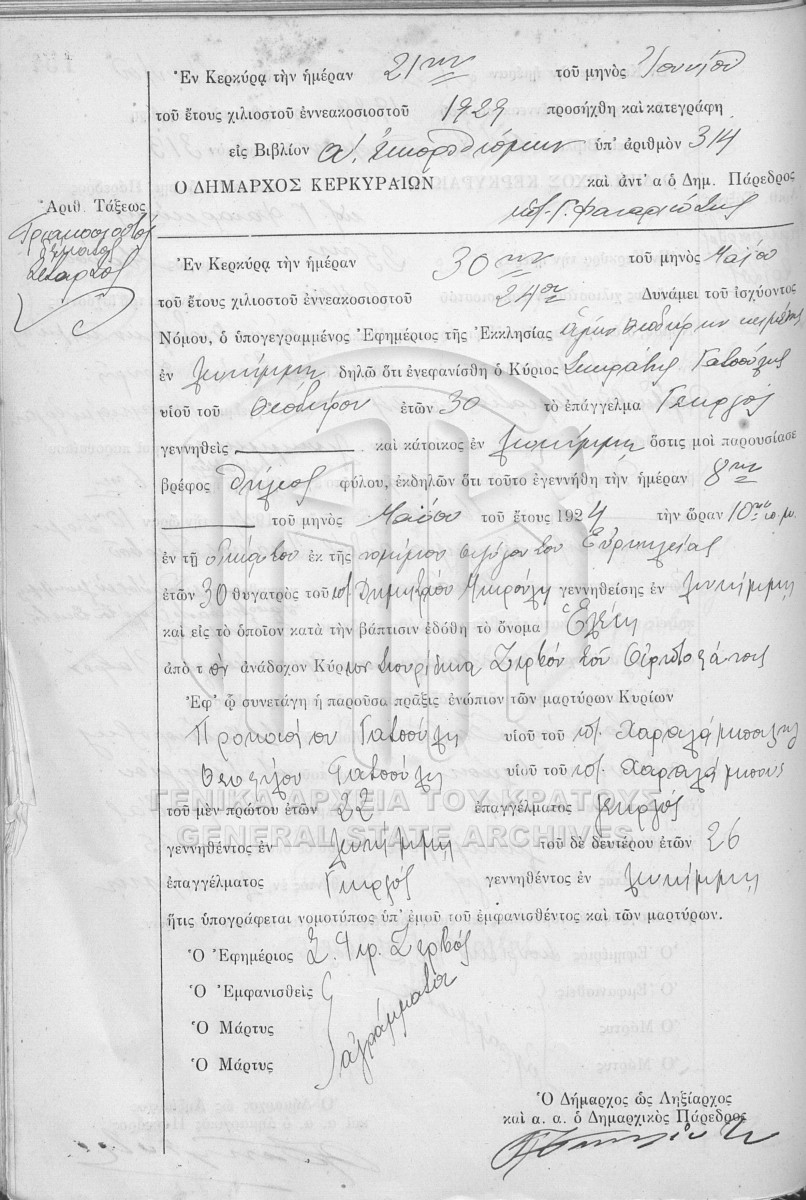 Ἐν Κερκύρᾳ τὴν ἡμέραν 21ην τοῦ μηνὸς Ἰουνίου
τοῦ ἔτους χιλιοστοῦ ἐννεακοσιοστοῦ 1929 προσήχθη καὶ κατεγράφη
εἰς Βιβλίον ὑπ' ἀριθμὸν 314
Ο ΔΗΜΑΡΧΟΣ ΚΕΡΚΥΡΑΙΩΝ καὶ ἀντ' α ὁ Δημ. Πάρεδρος
Ἀριθ. Τάξεως
Τριακοσιοστὸς
δέκατος
τέταρτος
Ἐν Κερκύρᾳ τὴν ἡμέραν 30ην τοῦ μηνὸς Μαΐου
τοῦ ἔτους χιλιοστοῦ ἐννεακοσιοστοῦ 24ου Δυνάμει τοῦ ἰσχύοντος
Νόμου, ὁ ὑπογεγραμμένος Ἐφημέριος τῆς Ἐκκλησίας
ἐν Λευκίμμῃ δηλῶ ὅτι ἐνεφανίσθη ὁ Κύριος Σωκράτης Γατσούλης
υἱοῦ τοῦ Θεοδώρου ἐτῶν 30 τὸ ἐπάγγελμα Γεωργὸς
γεννηθεὶς καὶ κάτοικος ἐν Λευκίμμῃ ὅστις μοὶ παρουσίασε
βρέφος θήλεος φύλου, ἐκδηλῶν ὅτι τοῦτο ἐγεννήθη τὴν ἡμέραν 8ην
τοῦ μηνὸς Μαΐου τοῦ ἔτους 1924 τὴν ὥραν 10ην π.μ.
ἐν τῇ οἰκίᾳ του ἐκ τῆς νομίμου συζύγου του
ἐτῶν 30 θυγατρὸς τοῦ ποτ. Δημητρίου γεννηθείσης ἐν Λευκίμμῃ
καὶ εἰς τὸ ὁποῖον κατὰ τὴν βάπτισιν ἐδόθη τὸ ὄνομα Ἑλένη
ἀπὸ τὸν ἀνάδοχον Κύριον Ζερβὸν τοῦ
Ἐφ' ᾧ συνετάγη ἡ παροῦσα πρᾶξις ἐνώπιον τῶν μαρτύρων Κυρίων
Προκοπίου Γατσούλη υἱοῦ τοῦ ποτ. Χαραλάμπους
Γατσούλη υἱοῦ τοῦ ποτ. Χαραλάμπους
ΓΕΝΙΚΑ ΑΡΧΕΙΑ ΤΟΥ ΚΡΑΤΟΥΣ
τοῦ μὲν πρώτου ἐτῶν 22 ἐπαγγέλματος γεωργὸς
GENERAL STATE ARCHIVES
γεννηθέντος ἐν Λευκίμμῃ τοῦ δὲ δευτέρου ἐτῶν 26
ἐπαγγέλματος Γεωργὸς γεννηθέντος ἐν Λευκίμμῃ
ἥτις ὑπογράφεται νομοτύπως ὑπ' ἐμοῦ τοῦ ἐμφανισθέντος καὶ τῶν μαρτύρων.
Ὁ Ἐφημέριος Σ. Ζερβός
Ὁ Ἐμφανισθεὶς
Ὁ Μάρτυς ἀγράμματοι
Ὁ Μάρτυς
Ὁ Δήμαρχος ὡς Ληξίαρχος
καὶ α. α. ὁ Δημαρχικὸς Πάρεδρος